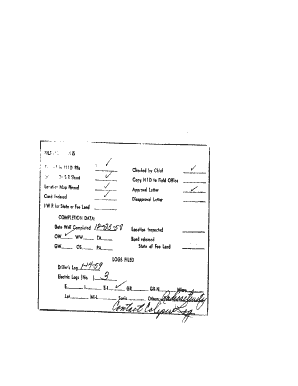 Checked by Chief ✓
Copy N I D to Field Office
Location Map Pinned ✓
Approval Letter ✓
Card Indexed ✓
Disapproval Letter
I W R for State or Fee Land
COMPLETION DATA:
Date Well Completed
Location Inspected
OW ✓ WW TA
Bond released
GW OS PA
State of Fee Land
LOGS FILED
Driller's Log 1-9-59
Electric Logs (No. ) 3
E I E-I ✓ GR GR-N Micro
Lat Mi-L Sonic Others
Contact Caliper Log